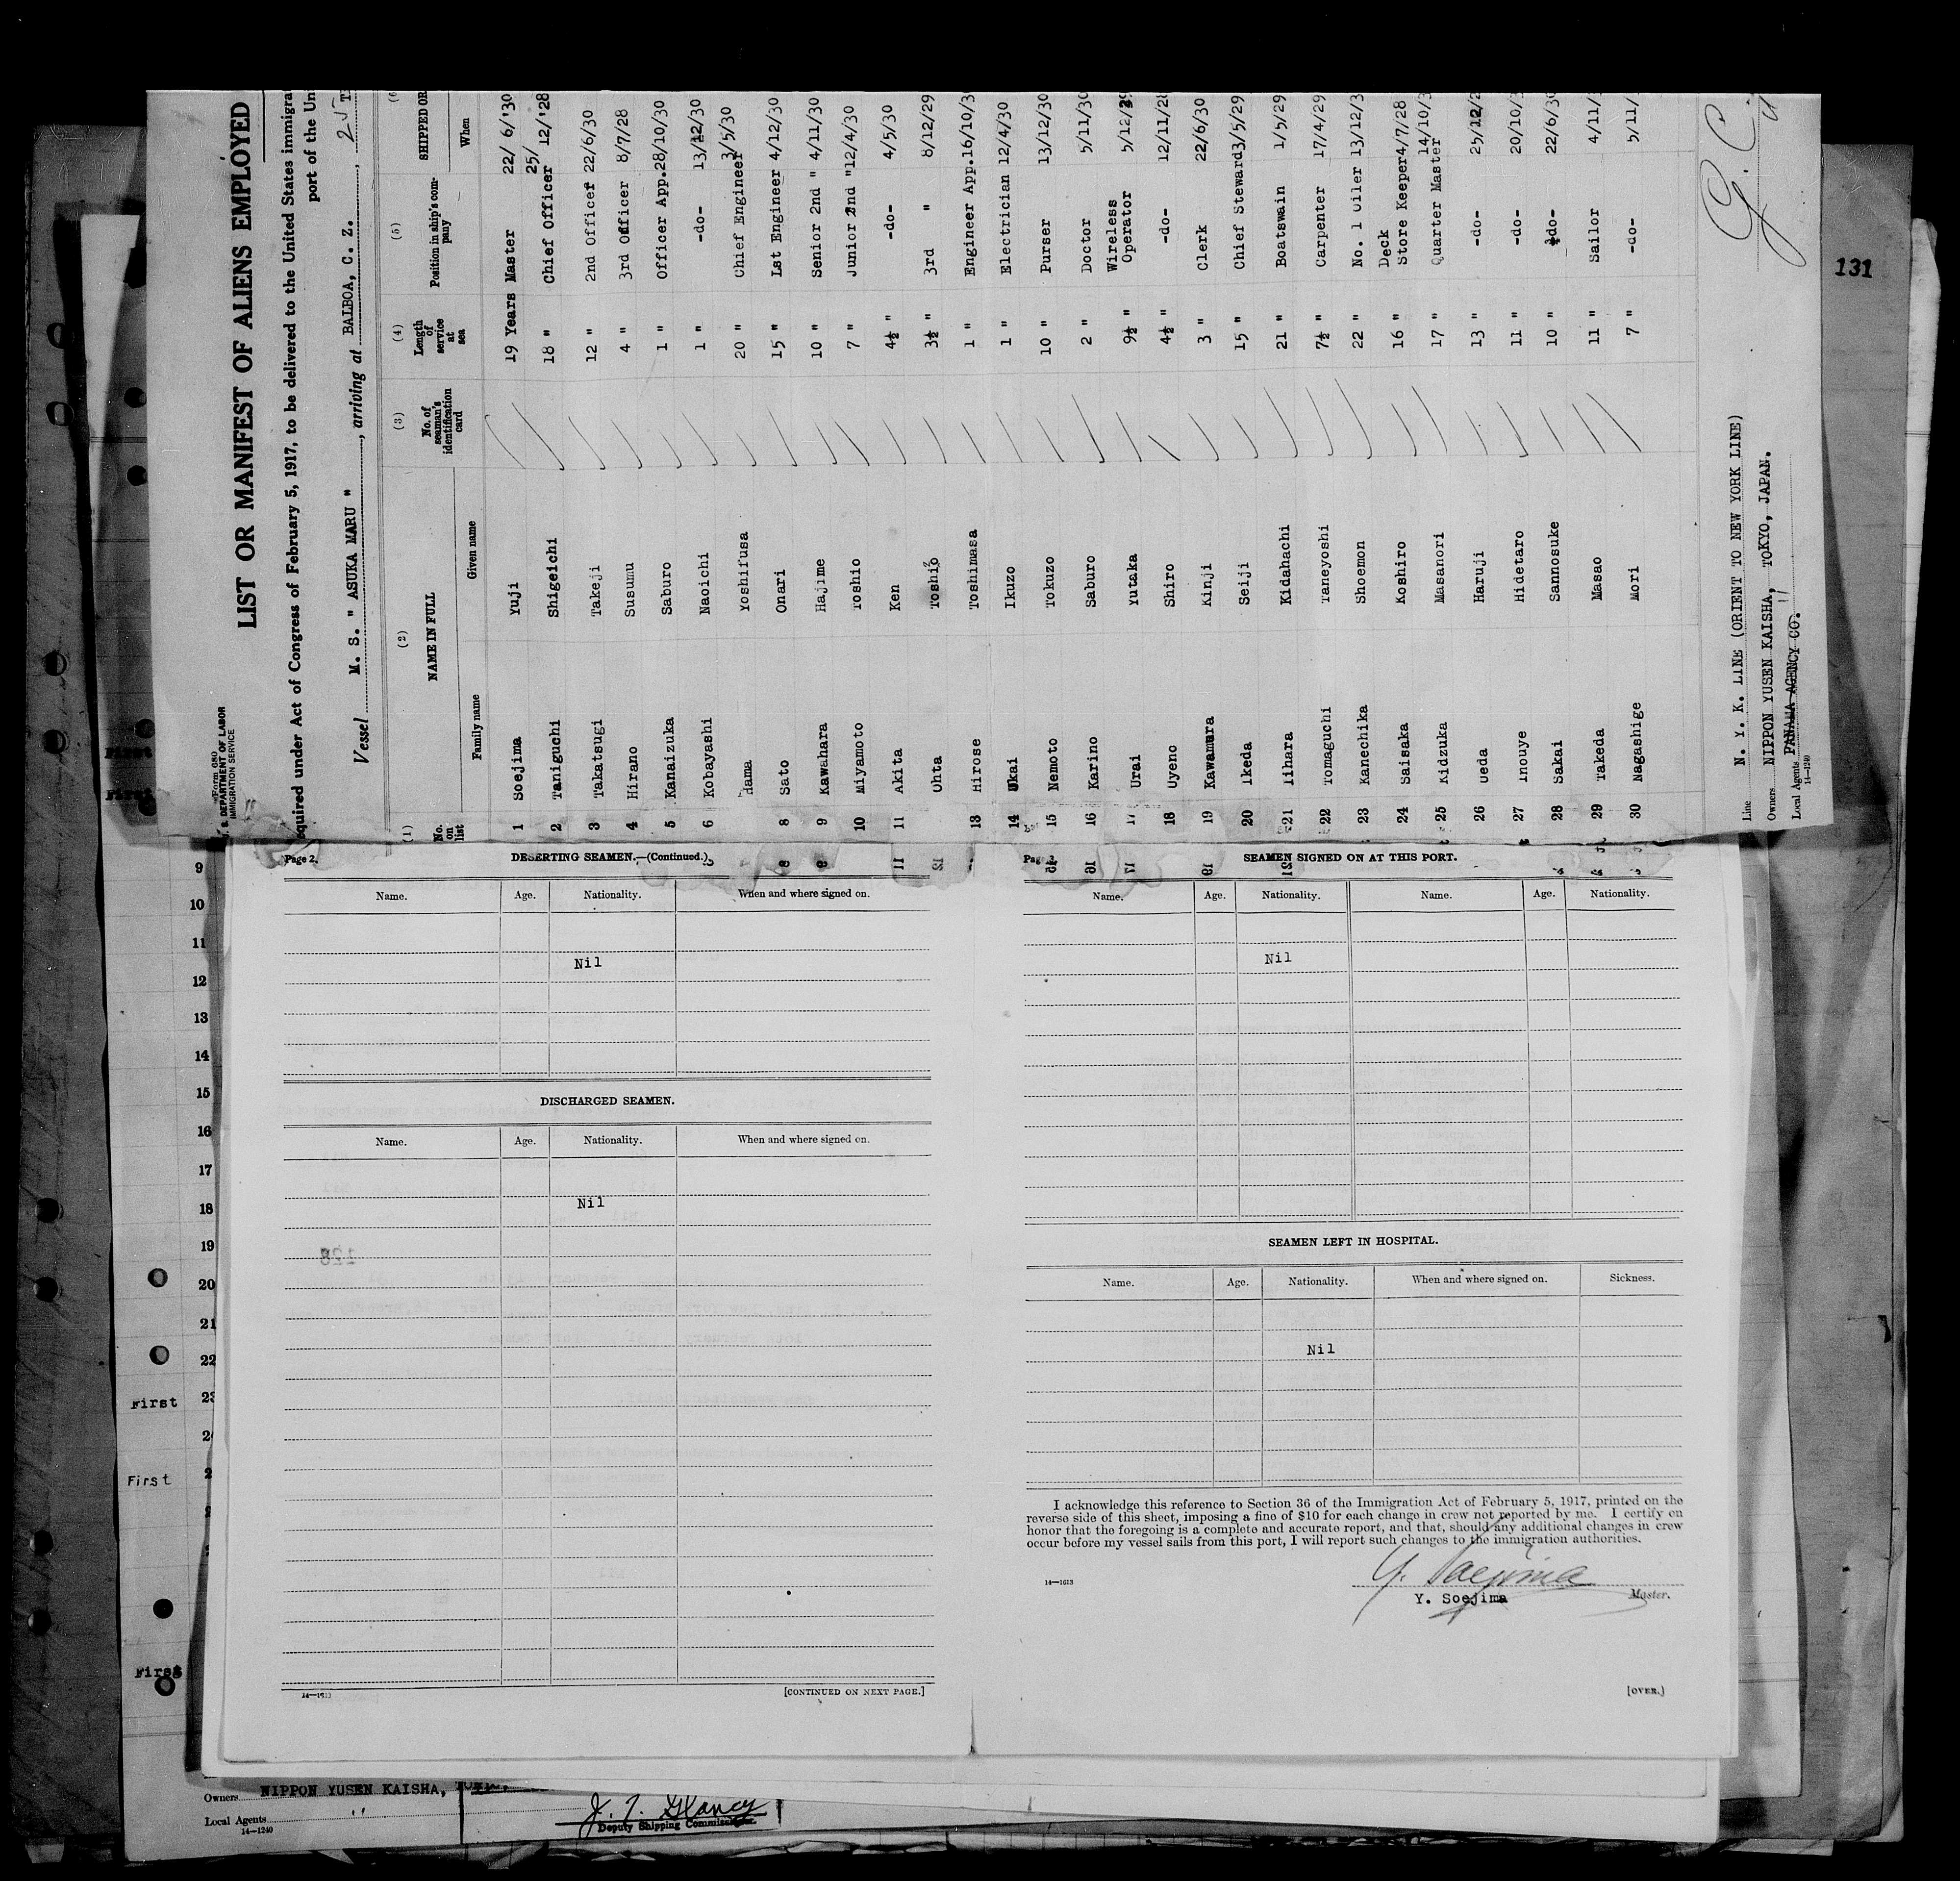 Form 680
U. S. DEPARTMENT OF LABOR
IMMIGRATION SERVICE
LIST OR MANIFEST OF ALIENS EMPLOYED
equired under Act of Congress of February 5, 1917, to be delivered to the United States immigra
port of the Un
Vessel M. S. " ASUKA MARU ", arriving at BALBOA, C. Z., 25
(1) (2) (3) (4) (5) (6
No. on list NAME IN FULL No. of seaman's identification card Length of service at sea Position in ship's company SHIPPED OR
Family name Given name When
1 Soejima Yuji 19 Years Master 22/ 6/'30
2 Taniguchi Shigeichi 18 " Chief Officer 25/ 12/'28
3 Takatsugi Takeji 12 " 2nd Officer 22/6/30
4 Hirano Susumu 4 " 3rd Officer 8/7/28
5 Kanaizuka Saburo 1 " Officer App. 28/10/30
6 Kobayashi Naoichi 1 " -do- 13/12/30
Hama Yoshifusa 20 " Chief Engineer 3/5/30
8 Sato Onari 15 " 1st Engineer 4/12/30
9 Kawahara Hajime 10 " Senior 2nd " 4/11/30
10 Miyamoto Toshio 7 " Junior 2nd " 12/4/30
11 Akita Ken 4½ " -do- 4/5/30
Ohta Toshio 3½ " 3rd " 8/12/29
13 Hirose Toshimasa 1 " Engineer App. 16/10/3
14 Ukai Ikuzo 1 " Electrician 12/4/30
15 Nemoto Tokuzo 10 " Purser 13/12/30
16 Karino Saburo 2 " Doctor 5/11/30
17 Urai Yutaka 9½ " Wireless Operator 5/12/29
18 Uyeno Shiro 4½ " -do- 12/11/28
19 Kawamura Kinji 3 " Clerk 22/6/30
20 Ikeda Seiji 15 " Chief Steward 3/5/29
21 Iihara Kidahachi 21 " Boatswain 1/5/29
22 Tomaguchi Taneyoshi 7½ " Carpenter 17/4/29
23 Kanechika Shoemon 22 " No. 1 Oiler 13/12/3
24 Saisaka Koshiro 16 " Deck Store Keeper 4/7/28
25 Kidzuka Masanori 17 " Quarter Master 14/10/3
26 Ueda Haruji 13 " -do- 25/12/2
27 Inouye Hidetaro 11 " -do- 20/10/3
28 Sakai Sannosuke 10 " -do- 22/6/30
29 Takeda Masao 11 " Sailor 4/11/
30 Nagashige Mori 7 " -do- 5/11/
Line N. Y. K. LINE (ORIENT TO NEW YORK LINE)
Owners NIPPON YUSEN KAISHA, TOKYO, JAPAN.
Local Agents PANAMA AGENCY CO. "
14—1240
131
First
First
9
10
11
12
13
14
15
16
17
18
19
20
21
22
23
First
First
First
Page 2.
DESERTING SEAMEN.—(Continued.)
Name. Age. Nationality. When and where signed on.
Nil
DISCHARGED SEAMEN.
Name. Age. Nationality. When and where signed on.
Nil
[CONTINUED ON NEXT PAGE.]
SEAMEN SIGNED ON AT THIS PORT.
Name. Age. Nationality. Name. Age. Nationality.
Nil
SEAMEN LEFT IN HOSPITAL.
Name. Age. Nationality. When and where signed on. Sickness.
Nil
I acknowledge this reference to Section 36 of the Immigration Act of February 5, 1917, printed on the
reverse side of this sheet, imposing a fine of $10 for each change in crew not reported by me. I certify on
honor that the foregoing is a complete and accurate report, and that, should any additional changes in crew
occur before my vessel sails from this port, I will report such changes to the immigration authorities.
14—1613
Y. Soejima
Y. Soejima Master.
[OVER.]
Owners NIPPON YUSEN KAISHA,
Local Agents "
14—1240
J. T. Glancy
Deputy Shipping Commissioner